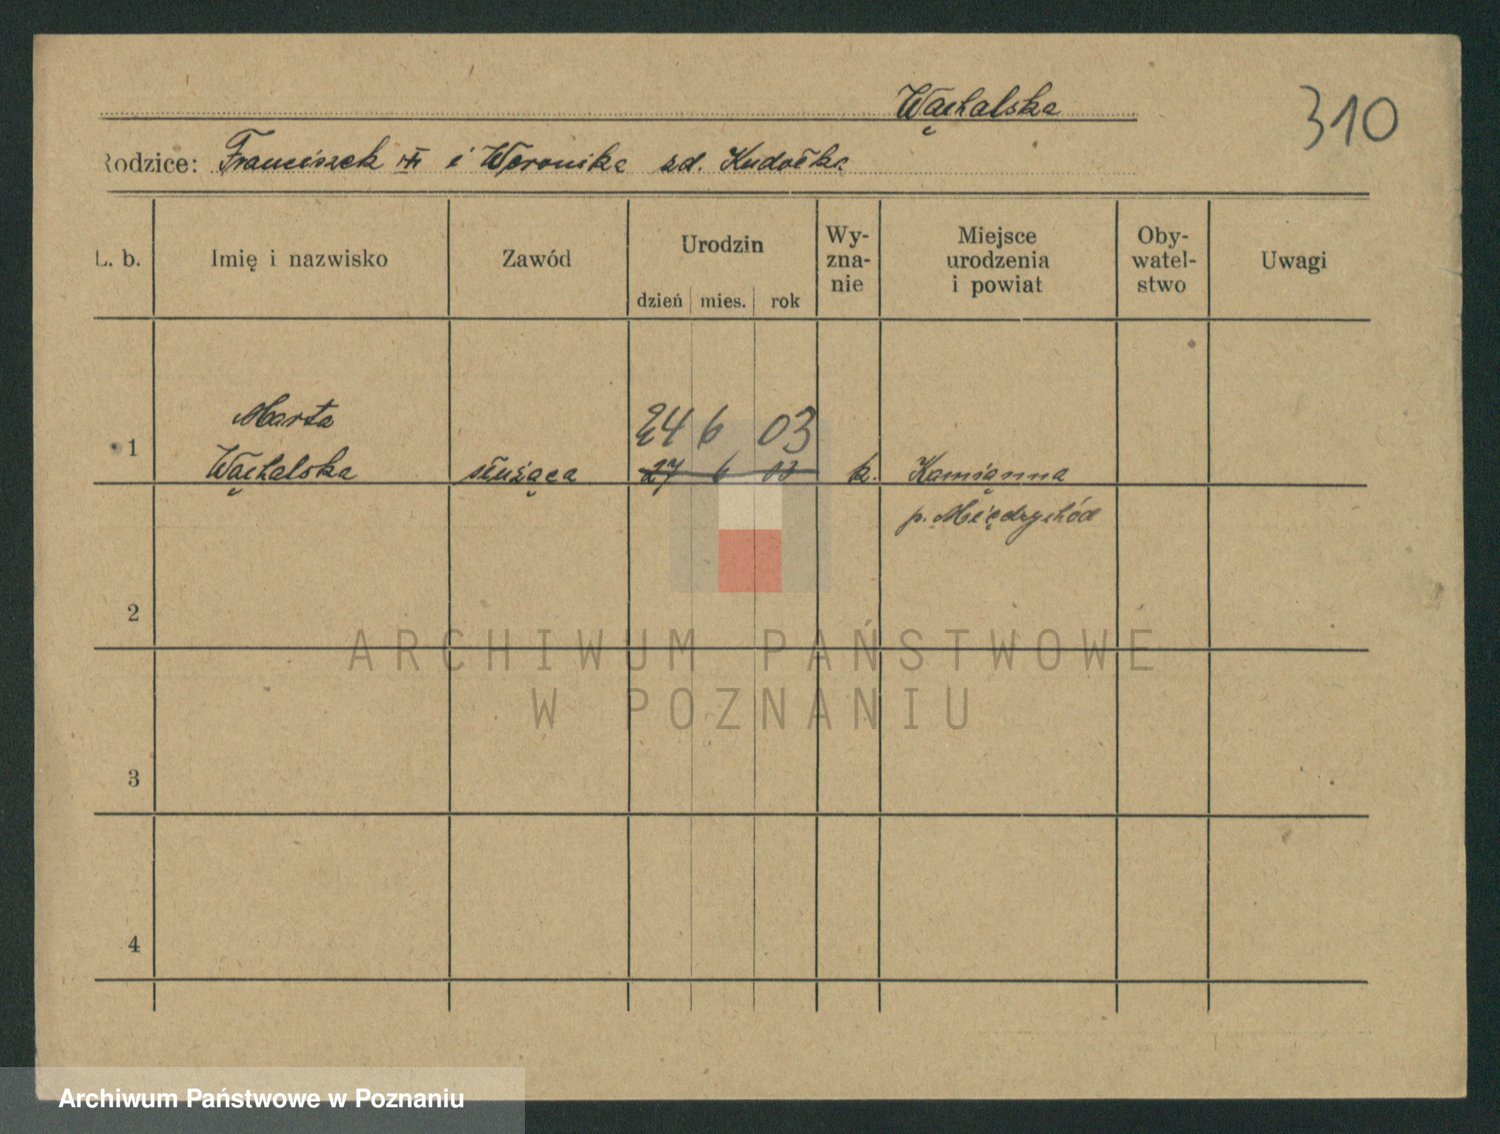 Wąchalska
310
Rodzice: Franciszek i Weronika zd. Kudočka
L. b. Imię i nazwisko Zawód Urodzin Wy- Miejsce Oby- Uwagi
zna- urodzenia watel-
nie i powiat stwo
dzień mies. rok
Marta
24 6 03
1 Wąchalska służąca 27 6 03 k. Kamiąnna
p. Międzychód
2
3
4
ARCHIWUM PAŃSTWOWE
W POZNANIU
Archiwum Państwowe w Poznaniu